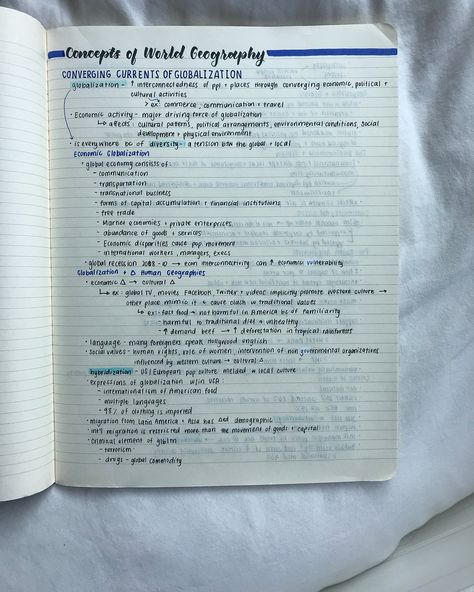 Concepts of World Geography
CONVERGING CURRENTS OF GLOBALIZATION
globalization - ↑ interconnectedness of ppl + places through converging economic, political +
cultural activities
> ex: commerce, communication + travel
· Economic activity - major driving force of globalization
↳ affects: cultural patterns, political arrangements, environmental conditions, social
development + physical environment
· is everywhere bc of diversity - a tension btw the global + local
Economic Globalization
· global economy consists of:
- communication
- transportation
- transnational business
- forms of capital accumulation + financial institutions
- free trade
- Market economies + private enterprises
- abundance of goods + services
- Economic disparities cause pop movement
- international workers, managers, execs
· global recession 2008-10 → econ interconnectivity can ↑ economic vulnerability
Globalization + Δ Human Geographies
· economic Δ → cultural Δ
↳ ex: global TV, movies, Facebook, Twitter + videos implicitly promote western culture →
other places mimic it + cause clash w traditional values
↳ ex: fast food → not harmful in America bc of familiarity
→ harmful to traditional diet + unhealthy
· ↑ demand beef → ↑ deforestation in tropical rainforests
· language - many foreigners speak Hollywood english
· Social values - human rights, role of women, intervention of non governmental organizations
influenced by western culture → cultural Δ
hybridization - US/European pop culture melded w local culture
· expressions of globalization w/in USA:
- internationalism of American food
- multiple languages
- 98% of clothing is imported
· migration from Latin America + Asia has Δed demographic
· int'l migration is restricted more than the movement of goods + capital
· Criminal element of glbltn
- terrorism
- drugs - global commodity